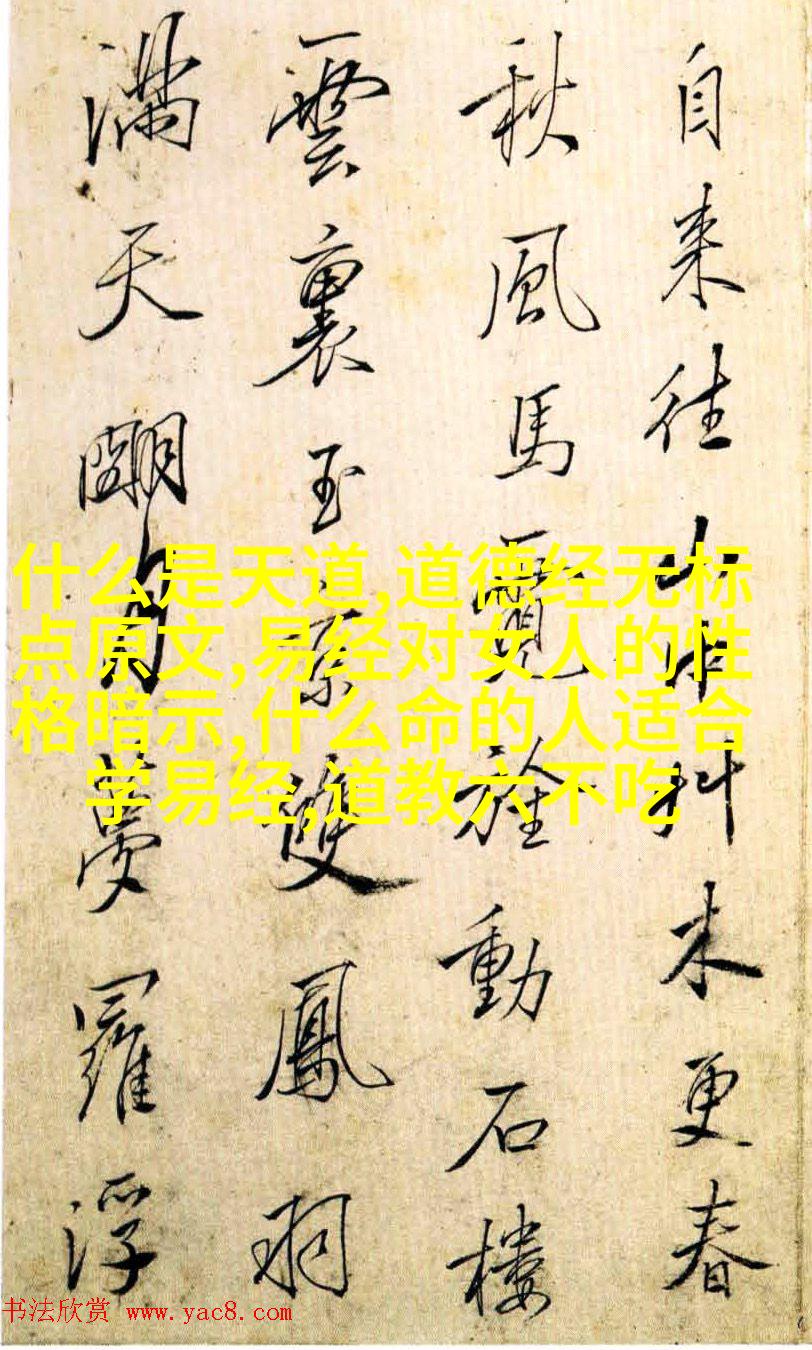 自来往山中米更春
秋風馬旌動石樓
雲裏玉京雙鳳
滿天月夢羅浮
什么是天道,道德经无标
点原文,易经对女人的性
格暗示,什么命的人适合
学易经,道教六不吃
书法欣赏 www.yac8.com